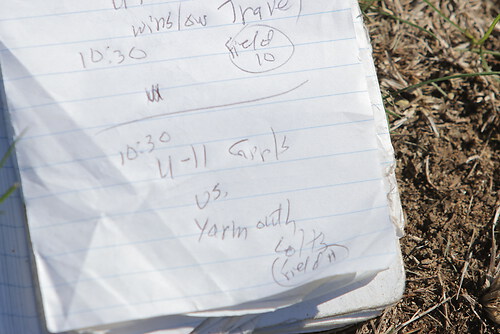 Winslow Travel
10:30 Field 10
10:30
U-11 Girls
vs.
Yarmouth
Colts
Field 11